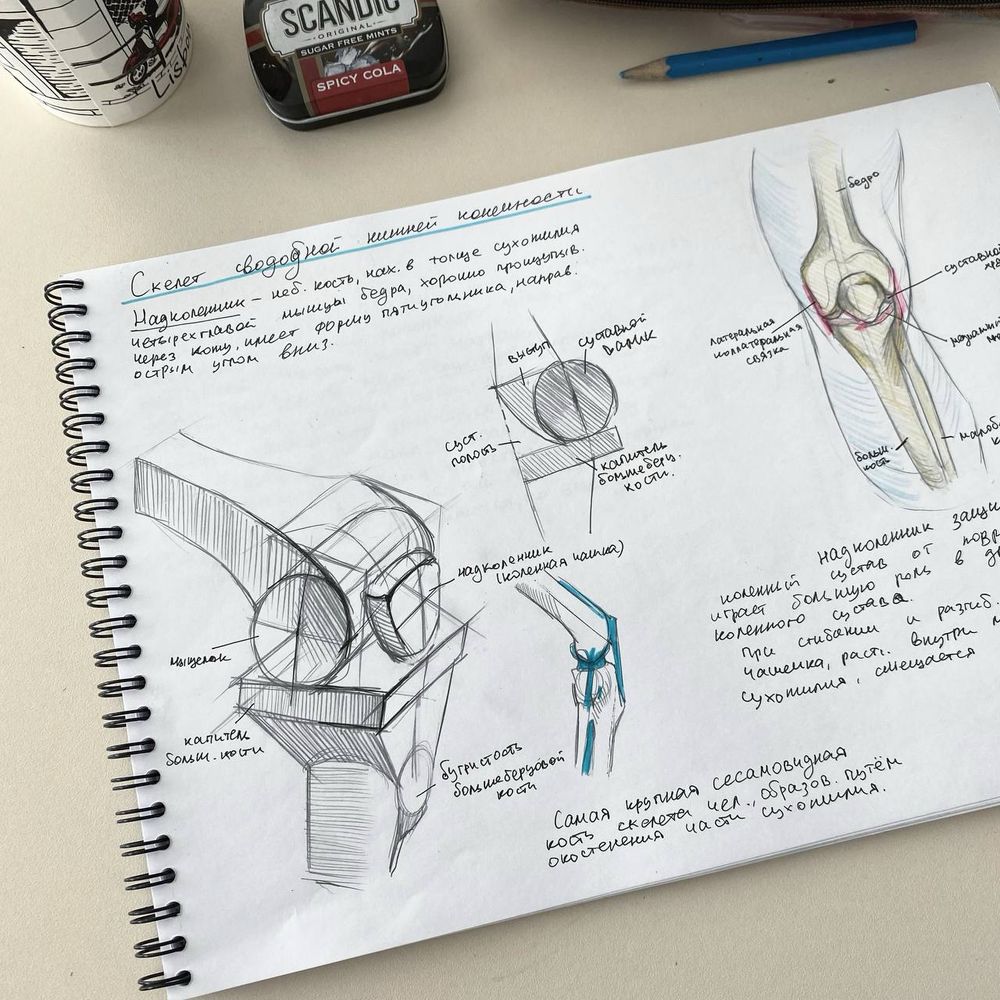 SCANDIC
ORIGINAL
SUGAR FREE MINTS
SPICY COLA
Скелет свободной нижней конечности
Надколенник – неб. кость, нах. в толще сухожилия
четырехглавой мышцы бедра, хорошо прощупыв.
через кожу, имеет форму пятиугольника, направ.
острым углом вниз.
бедро
суставной
латеральная
коллатеральная
связка
больш.
кость
выступ
суставной
валик
суст.
полость
капитель
большеберц.
кости.
надколенник
(коленная чашка)
мыщелок
капитель
больш. кости
бугристость
большеберцовой
кости
надколенник
коленный сустав от
играет большую роль в
коленного сустава.
При сгибании и разгиб.
чашечка, расп. внутри
сухожилия, смещается
Самая крупная сесамовидная
кость скелета чел., образов. путём
окостенения части сухожилия.